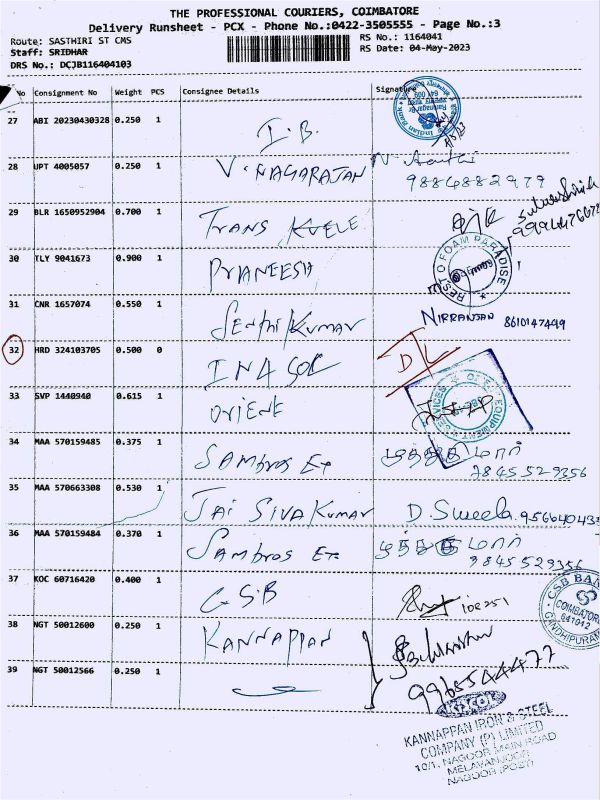 THE PROFESSIONAL COURIERS, COIMBATORE
Delivery Runsheet - PCX - Phone No.:0422-3505555 - Page No.:3
Route: SASTHIRI ST CMS
RS No.: 1164041
Staff: SRIDHAR
RS Date: 04-May-2023
DRS No.: DCJB116404103
No Consignment No Weight PCS Consignee Details Signature
27 ABI 20230430328 0.250 1 I.B. Indian Bank
28 UPT 4005057 0.250 1 V. NAGARAJAN
9884882979
29 BLR 1650952904 0.700 1 TRANS
30 TLY 9041673 0.900 1 PRANEESH BEST O FOAM PARADISE
31 CNR 1657074 0.550 1 Senthil Kumar NIRRANJAN 8610147499
32 HRD 324103705 0.500 0
33 SVP 1440940 0.615 1 ORIENE EQUIPMENT SERVICES
34 MAA 570159485 0.375 1 Sambros Ex
7845529356
35 MAA 570663308 0.530 1 JAI SIVA KUMAR D. Sweela
36 MAA 570159484 0.370 1 Sambros Ex
9845529356
37 KOC 60716420 0.400 1 CSB CSB BANK COIMBATORE 641012 GANDHIPURAM
38 NGT 50012600 0.250 1 KANNAPPAN
39 NGT 50012566 0.250 1 9965544477
KANNAPPAN IRON & STEEL
COMPANY (P) LIMITED
10/1, NAGOOR MAIN ROAD
MELAVANJOOR
NAGOOR (POST)